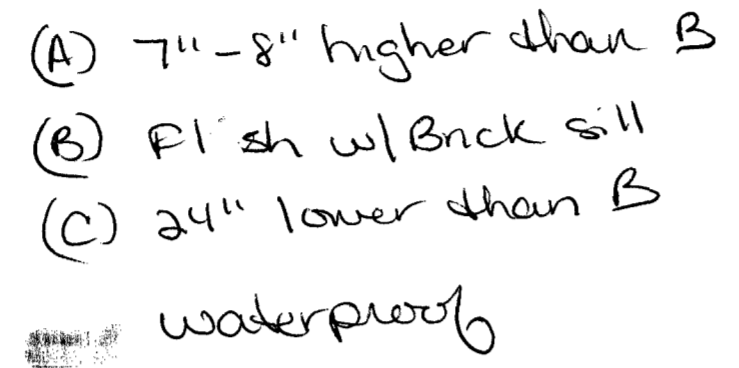 (A) 7"-8" higher than B
(B) w/ Brick sill
(C) 24" lower than B
waterproof